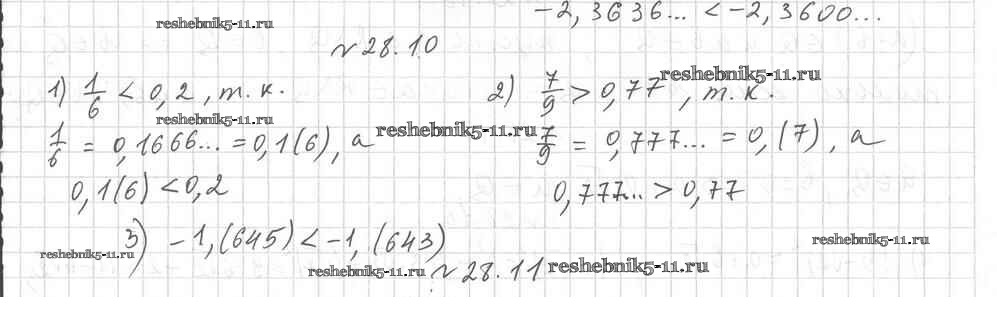 -2,3636... < -2,3600...
reshebnik5-11.ru
№ 28.10
1) 1/6 < 0,2, т. к.
2) 7/9 > 0,77, т. к.
reshebnik5-11.ru
reshebnik5-11.ru
1/6 = 0,1666... = 0,1(6), а
reshebnik5-11.ru
7/9 = 0,777... = 0,(7), а
0,1(6) < 0,2
0,777... > 0,77
3) -1,(645) < -1,(643)
reshebnik5-11.ru
reshebnik5-11.ru
reshebnik5-11.ru
№ 28.11
reshebnik5-11.ru